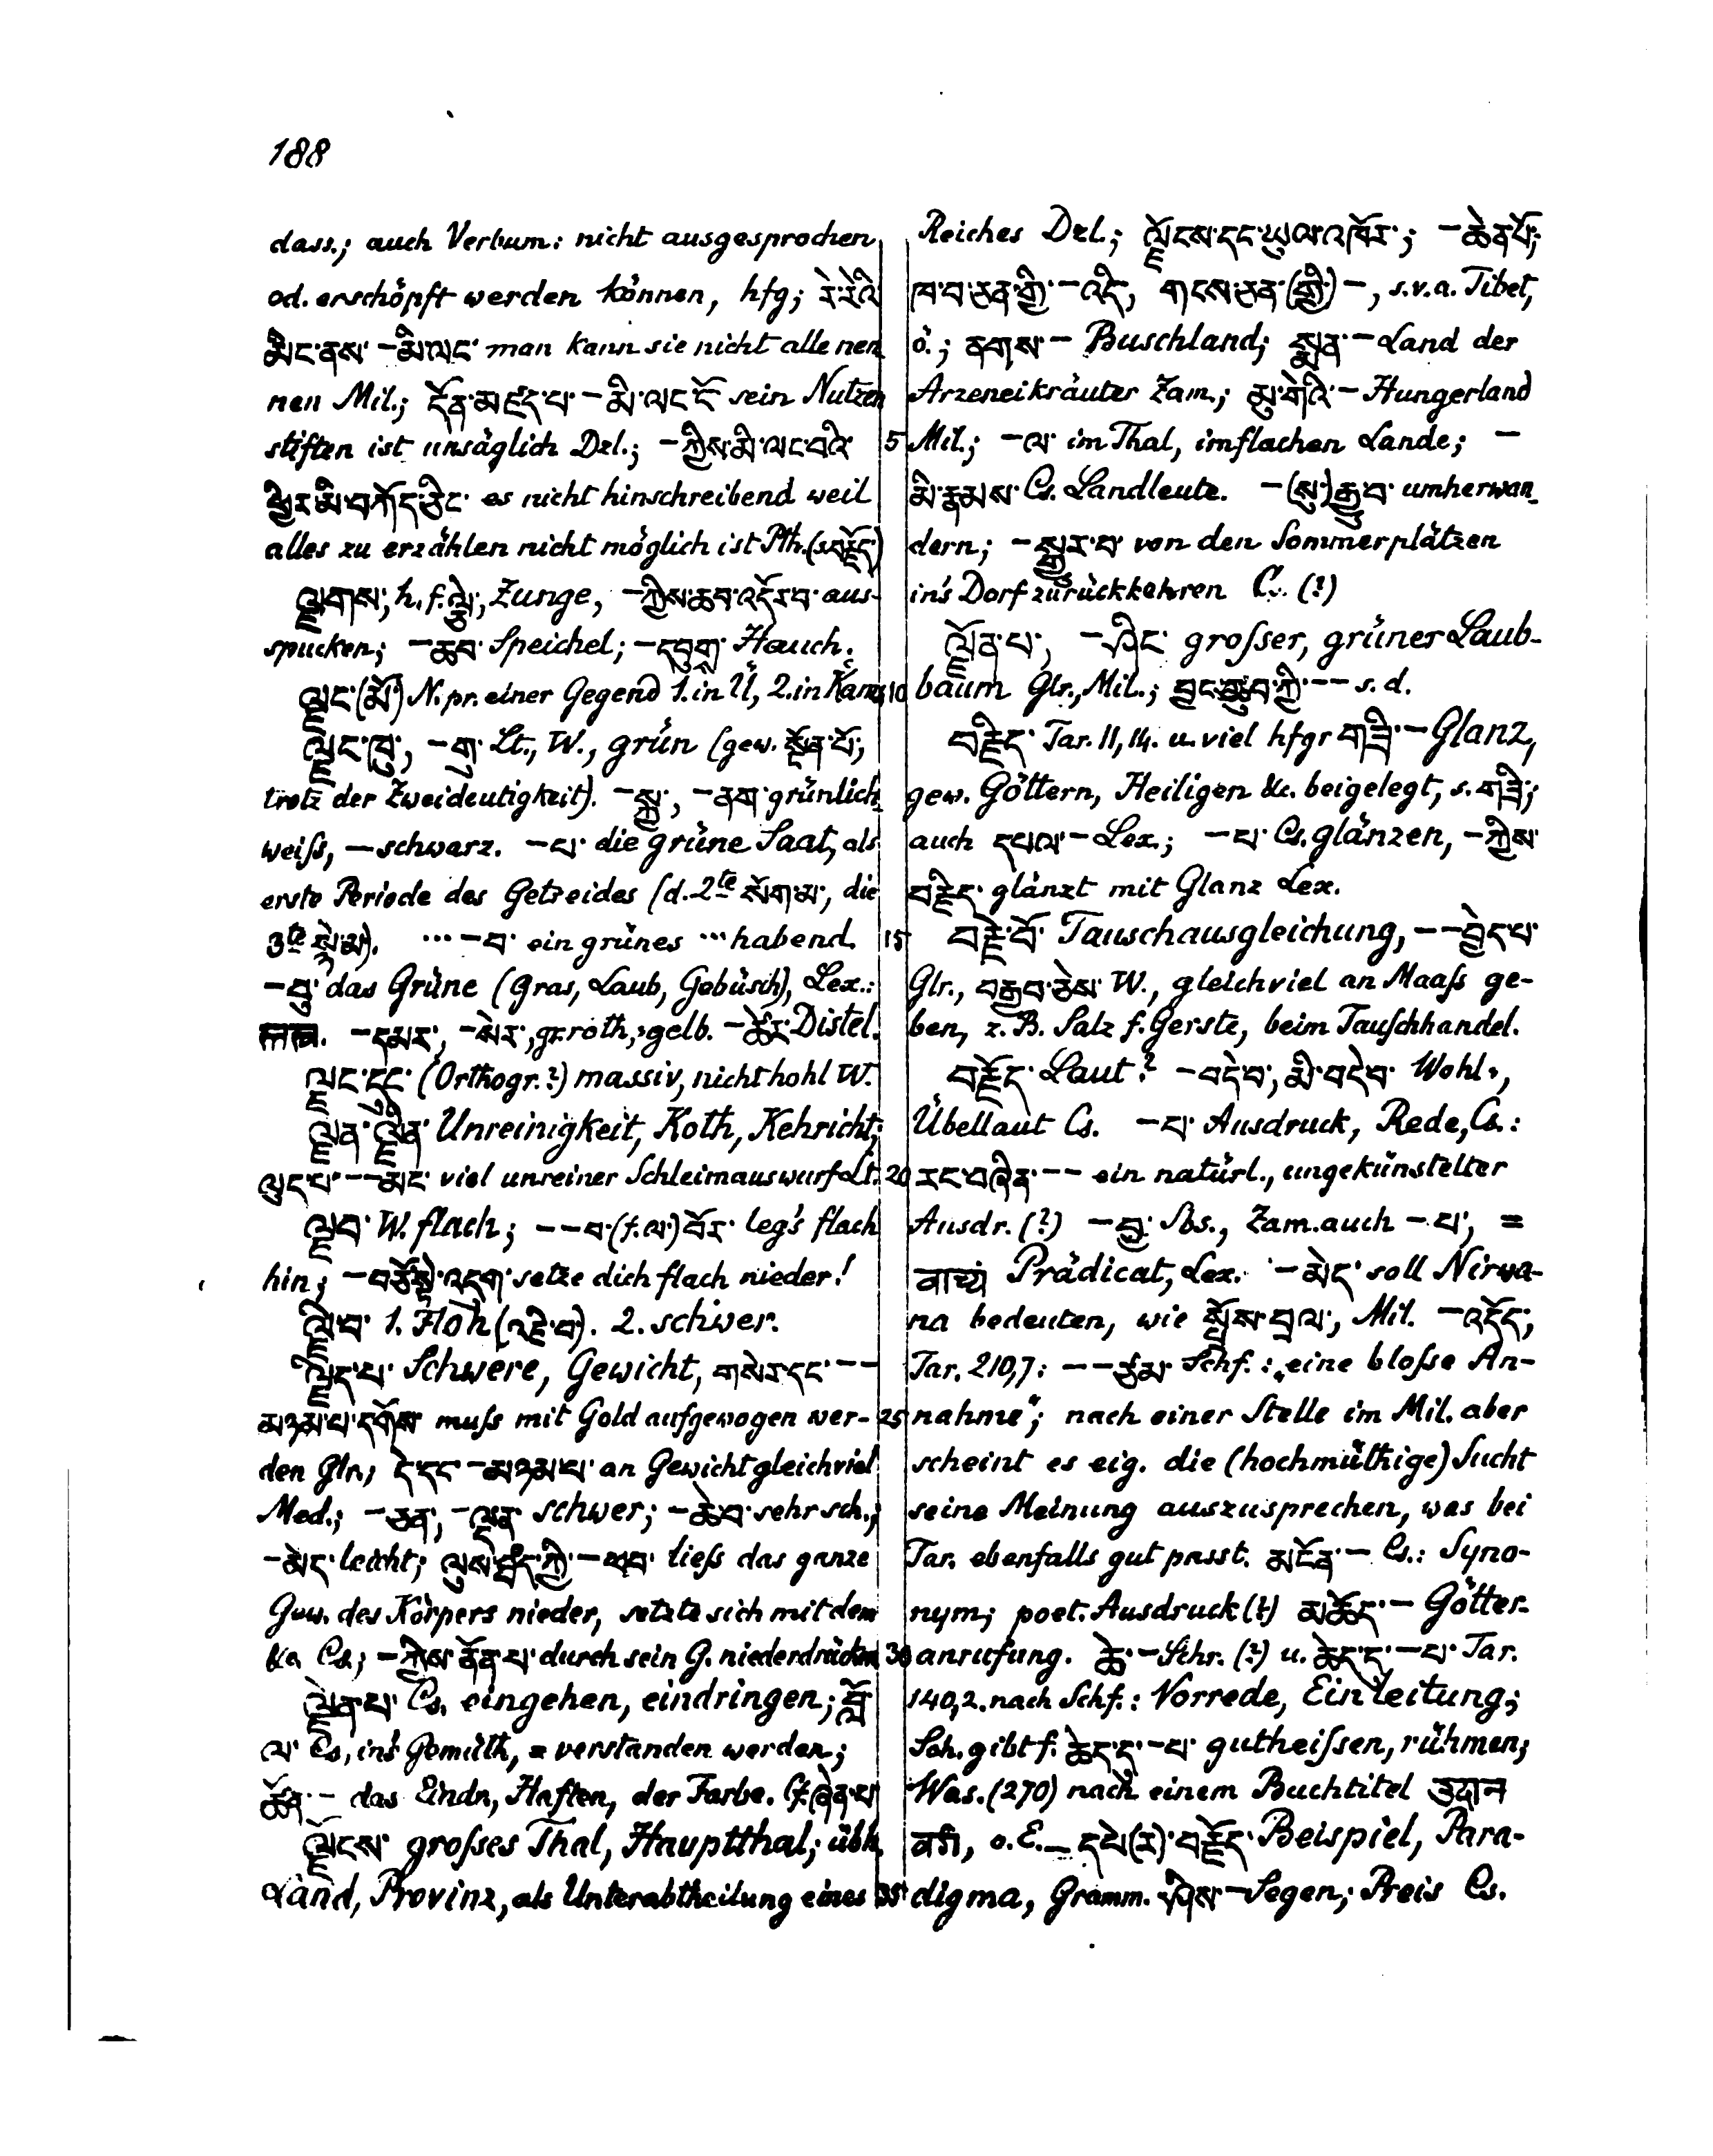 188
dass.; auch Verbum: nicht ausgesprochen
od. erschöpft werden können, hfg; རེ་རེའི
མིང་ནས་ – མི་ལང་ man kann sie nicht alle nen
nen Mil.; དོན་མཛད་པ་ – མི་ལང་ངོ sein Nutzen
stiften ist unsäglich Dzl.; – ཀྱིས་མི་ལང་བའི་ 5
ཕྱིར་མི་བཀོད་ཅིང་ es nicht hinschreibend weil
alles zu erzählen nicht möglich ist Pth. (s. བརྗོད་)
ལྗགས་, h. f. ལྕེ་, Zunge, – ཀྱིས་ཆབ་འདོར་བ་ aus-
spucken; – ཆབ་ Speichel; – དབུགས་ Hauch.
ལྗང་(མོ་) N. pr. einer Gegend 1. in Ü, 2. in Kams 10
ལྗང་ཁུ་, – གུ་ Lt., W., grün (gew. སྔོན་པོ་,
trotz der Zweideutigkeit). – སྐྱ་, – ནག་ grünlich
weiſs, – schwarz. – པ་ die grüne Saat, als
erste Periode des Getreides (d. 2te སོག་མ་, die
3te སྙེ་མ་). ... – བ་ ein grünes ... habend. 15
– བུ་ das Grüne (Gras, Laub, Gebüsch), Lex.:
– དམར་, – སེར་, gr. roth, › gelb. – ཚེར་ Distel.
ལྗང་དུང་ (Orthogr.?) massiv, nicht hohl W.
ལྗན་ལྗིན་ Unreinigkeit, Koth, Kehricht;
ལུད་པ་ – – མང་ viel unreiner Schleimauswurf Lt. 20
ལྗབ་ W. flach; – – བ་ (f. ལ་) བོར་ leg's flach
hin; – བཅོས་ཏེ་འདུག་ setze dich flach nieder!
ལྗི་བ་ 1. Floh (འཇི་བ་). 2. schwer.
ལྗིད་པ་ Schwere, Gewicht, གསེར་དང་ – –
མཉམ་པ་དགོས་ muſs mit Gold aufgewogen wer- 25
den Glr., དེ་དང་ – མཉམ་པ་ an Gewicht gleichviel
Med.; – ཅན་, – ལྡན་ schwer; – ཆེ་བ་ sehr sch.;
– མེད་ leicht; ལུས་སྤྱིད་ཀྱི་ – ཕབ་ lieſs das ganze
Gew. des Körpers nieder, setzte sich mit dem
Ka Cs.; – ཀྱིས་ནོན་པ་ durch sein G. niederdrücken 30
ལྗེན་པ་ Cs. eingehen, eindringen; བློ་
ལ་ Cs., ins Gemüth, = verstanden werden;
ཚོན་ – das Eindr., Haften, der Farbe. Cf. (ཞེན་པ་
ལྗོངས་ groſses Thal, Hauptthal; übh.
Land, Provinz, als Unterabtheilung eines 35
Reiches Dzl.; ལྗོངས་དང་ཡུལ་འཁོར་; – ཆེན་པོ་;
ཁ་བ་ཅན་གྱི་ – འདི, གངས་ཅན་(གྱི་) –, s. v. a. Tibet,
ö.; ནགས་ – Buschland; སྨན་ – Land der
Arzeneikräuter Zam.; མུ་གེའི་ – Hungerland
Mil.; – ལ་ im Thal, im flachen Lande; –
མི་རྣམས་ Cs. Landleute. – (སུ་)རྒྱུ་བ་ umherwan-
dern; – སྐྱུར་བ་ von den Sommerplätzen
in's Dorf zurückkehren C. (?)
ལྗོན་པ་, – ཤིང་ groſser, grüner Laub-
baum Glr., Mil.; བྱང་ཆུབ་ཀྱི་ – – s. d.
བརྗིད་ Tar. 11, 14. u. viel hfgr གཟི་ – Glanz,
gew. Göttern, Heiligen &c. beigelegt, s. གཟི་;
auch དཔལ་ – Lex.; – པ་ Cs. glänzen, – ཀྱིས་
བརྗིད་ glänzt mit Glanz Lex.
བརྗེ་བོ་ Tauschausgleichung, – – བྱེད་པ་
Glr., བརྒྱབ་ཅེས་ W., gleichviel an Maaſs ge-
ben, z. B. Salz f. Gerste, beim Tauſchhandel.
བརྗོད་ Laut? – བདེ་བ་, མི་བདེ་བ་ Wohl›,
Übellaut Cs. – པ་ Ausdruck, Rede, Cs.:
རང་བཞིན་ – – ein natürl., ungekünstelter
Ausdr. (?) – བྱ་ Sbs., Zam. auch – པ་, =
वाच्यं Prädicat, Lex. – མེད་ soll Nirwa-
na bedeuten, wie སྤྲོས་བྲལ་, Mil. – འདོད་,
Tar. 210, 7: – – ཙམ་ Schf.: „eine bloſse An-
nahme“; nach einer Stelle im Mil. aber
scheint es eig. die (hochmüthige) Sucht
seine Meinung auszusprechen, was bei
Tar. ebenfalls gut passt. མངོན་ – Cs.: Syno-
nym; poet. Ausdruck (?) མཆོད་ – Götter-
anrufung. ཆེ་ – Schr. (?) u. ཆེད་དུ་ – པ་ Tar.
140, 2. nach Schf.: Vorrede, Einleitung;
Sch. gibt f. ཆེད་དུ་ – པ་ gutheiſsen, rühmen;
Was. (270) nach einem Buchtitel उदान
वर्ग, o. E. – དཔེ(ར་)བརྗོད་ Beispiel, Para-
digma, Gramm. ཤིས་ – Segen; Preis Cs.